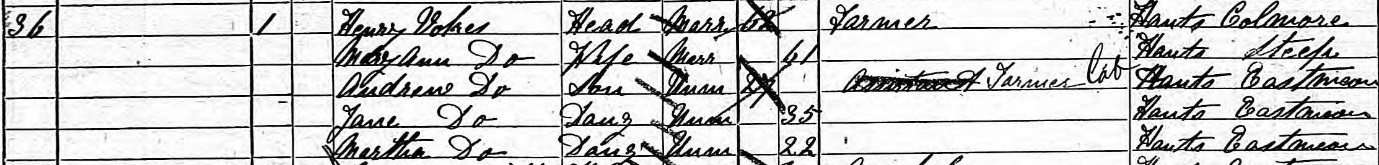 36 1 Henry Vokes Head Marr 62 Farmer Hants Colmore
Mary Ann Do Wife Marr 61 Hants Steep
Andrew Do Son Unm Farmer Lab Hants Eastmeon
Jane Do Daug Unm 35 Hants Eastmeon
Martha Do Daug Unm 22 Hants Eastmeon